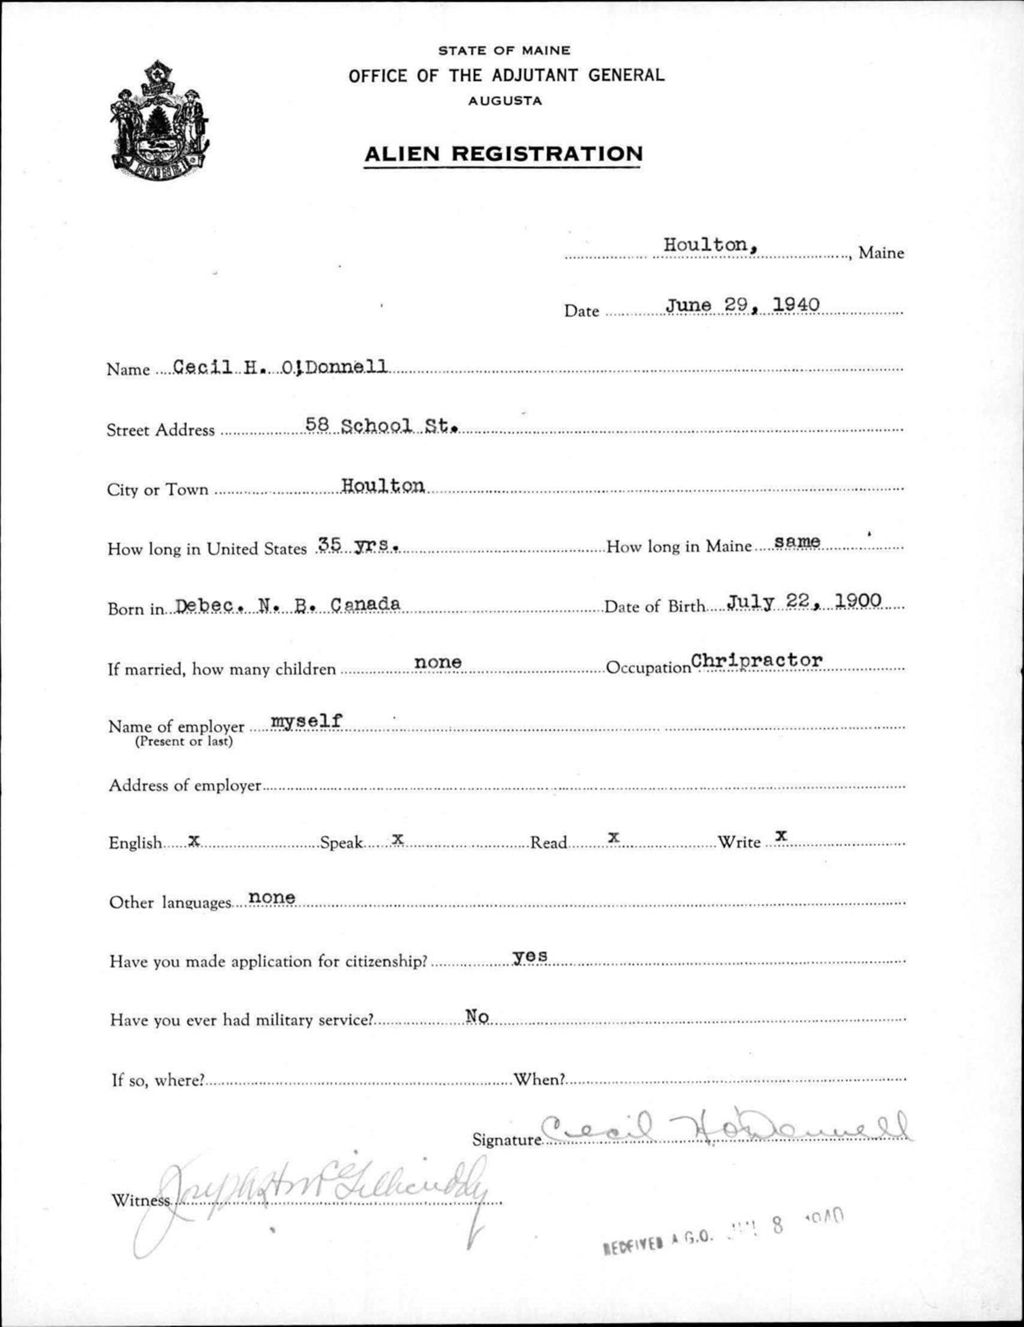 STATE OF MAINE
OFFICE OF THE ADJUTANT GENERAL
AUGUSTA
ALIEN REGISTRATION
MAINE
Houlton, , Maine
Date June 29, 1940
Name Cecil H. O'Donnell
Street Address 58 School St.
City or Town Houlton
How long in United States 35 yrs. How long in Maine same
Born in Debec. N. B. Canada Date of Birth July 22, 1900
If married, how many children none Occupation Chripractor
Name of employer myself
(Present or last)
Address of employer
English x Speak x Read x Write x
Other languages none
Have you made application for citizenship? yes
Have you ever had military service? No
If so, where? When?
Signature Cecil H O'Donnell
Witness Joseph
RECEIVED A.G.O. JUL 8 1940